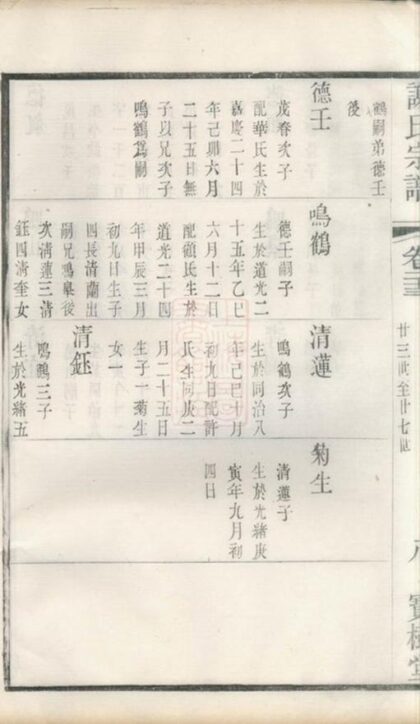 謝氏宗譜
廿三世至廿七世
寶樹堂
鶴嗣弟德壬
後
德壬
茂春次子
配華氏生於
嘉慶二十四
年己卯六月
二十五日無
子以兄次子
鳴鶴爲嗣
鳴鶴
德壬嗣子
生於道光二
十五年乙巳
六月十二日
配顧氏生於
道光二十四
年甲辰三月
初九日生子
四長清蘭出
嗣兄鳴臯後
次清蓮三清
鈺四清奎女
清蓮
鳴鶴次子
生於同治八
年己巳月
初九日配許
氏生同庚二
月二十五日
生子一菊生
女一
清鈺
鳴鶴三子
生於光緒五
菊生
清蓮子
生於光緒庚
寅年九月初
四日